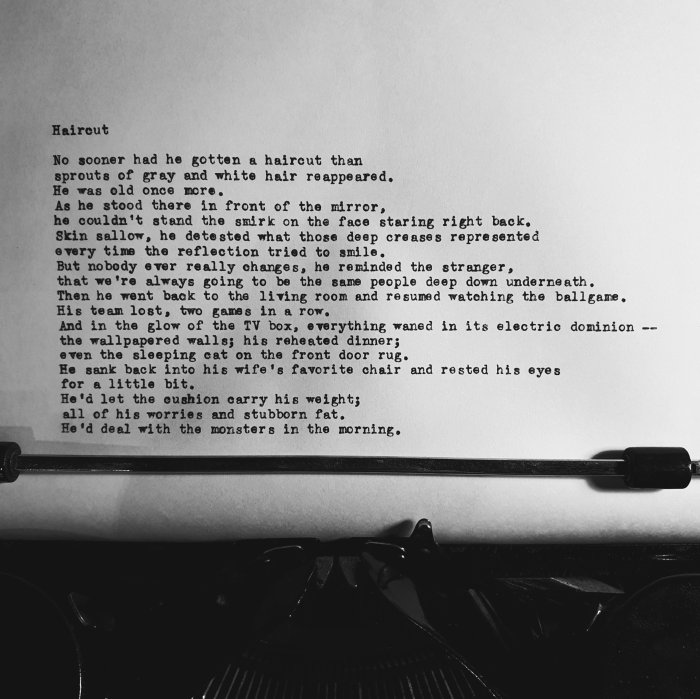 Haircut
No sooner had he gotten a haircut than
sprouts of gray and white hair reappeared.
He was old once more.
As he stood there in front of the mirror,
he couldn't stand the smirk on the face staring right back.
Skin sallow, he detested what those deep creases represented
every time the reflection tried to smile.
But nobody ever really changes, he reminded the stranger,
that we're always going to be the same people deep down underneath.
Then he went back to the living room and resumed watching the ballgame.
His team lost, two games in a row.
And in the glow of the TV box, everything waned in its electric dominion --
the wallpapered walls; his reheated dinner;
even the sleeping cat on the front door rug.
He sank back into his wife's favorite chair and rested his eyes
for a little bit.
He'd let the cushion carry his weight;
all of his worries and stubborn fat.
He'd deal with the monsters in the morning.